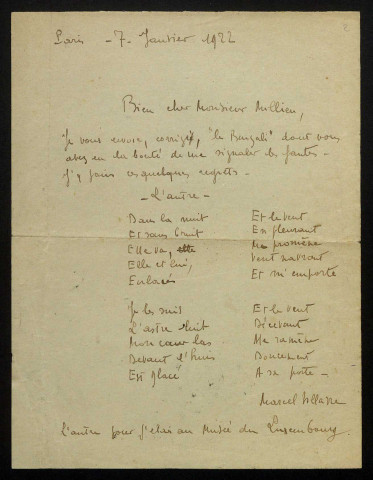 Paris - 7 - Janvier 1922
Bien cher Monsieur Millien,
Je vous envoie, corrigé, "le Bengali" dont vous
avez eu la bonté de me signaler les fautes -
J'y joins ces quelques regrets -
- L'autre -
Dans la nuit
Et sans bruit
Elle va, elle
Elle et lui,
Enlacés
Je les suis
L'astre luit
Mon cœur las
Devant l'huis
Est glacé
Et le vent
En pleurant
Me promène
Vent navrant
Et m'emporte
Et le vent
Décevant
Me ramène
Doucement
A sa porte -
Marcel
L'autre jour j'étais au Musée du Luxembourg.